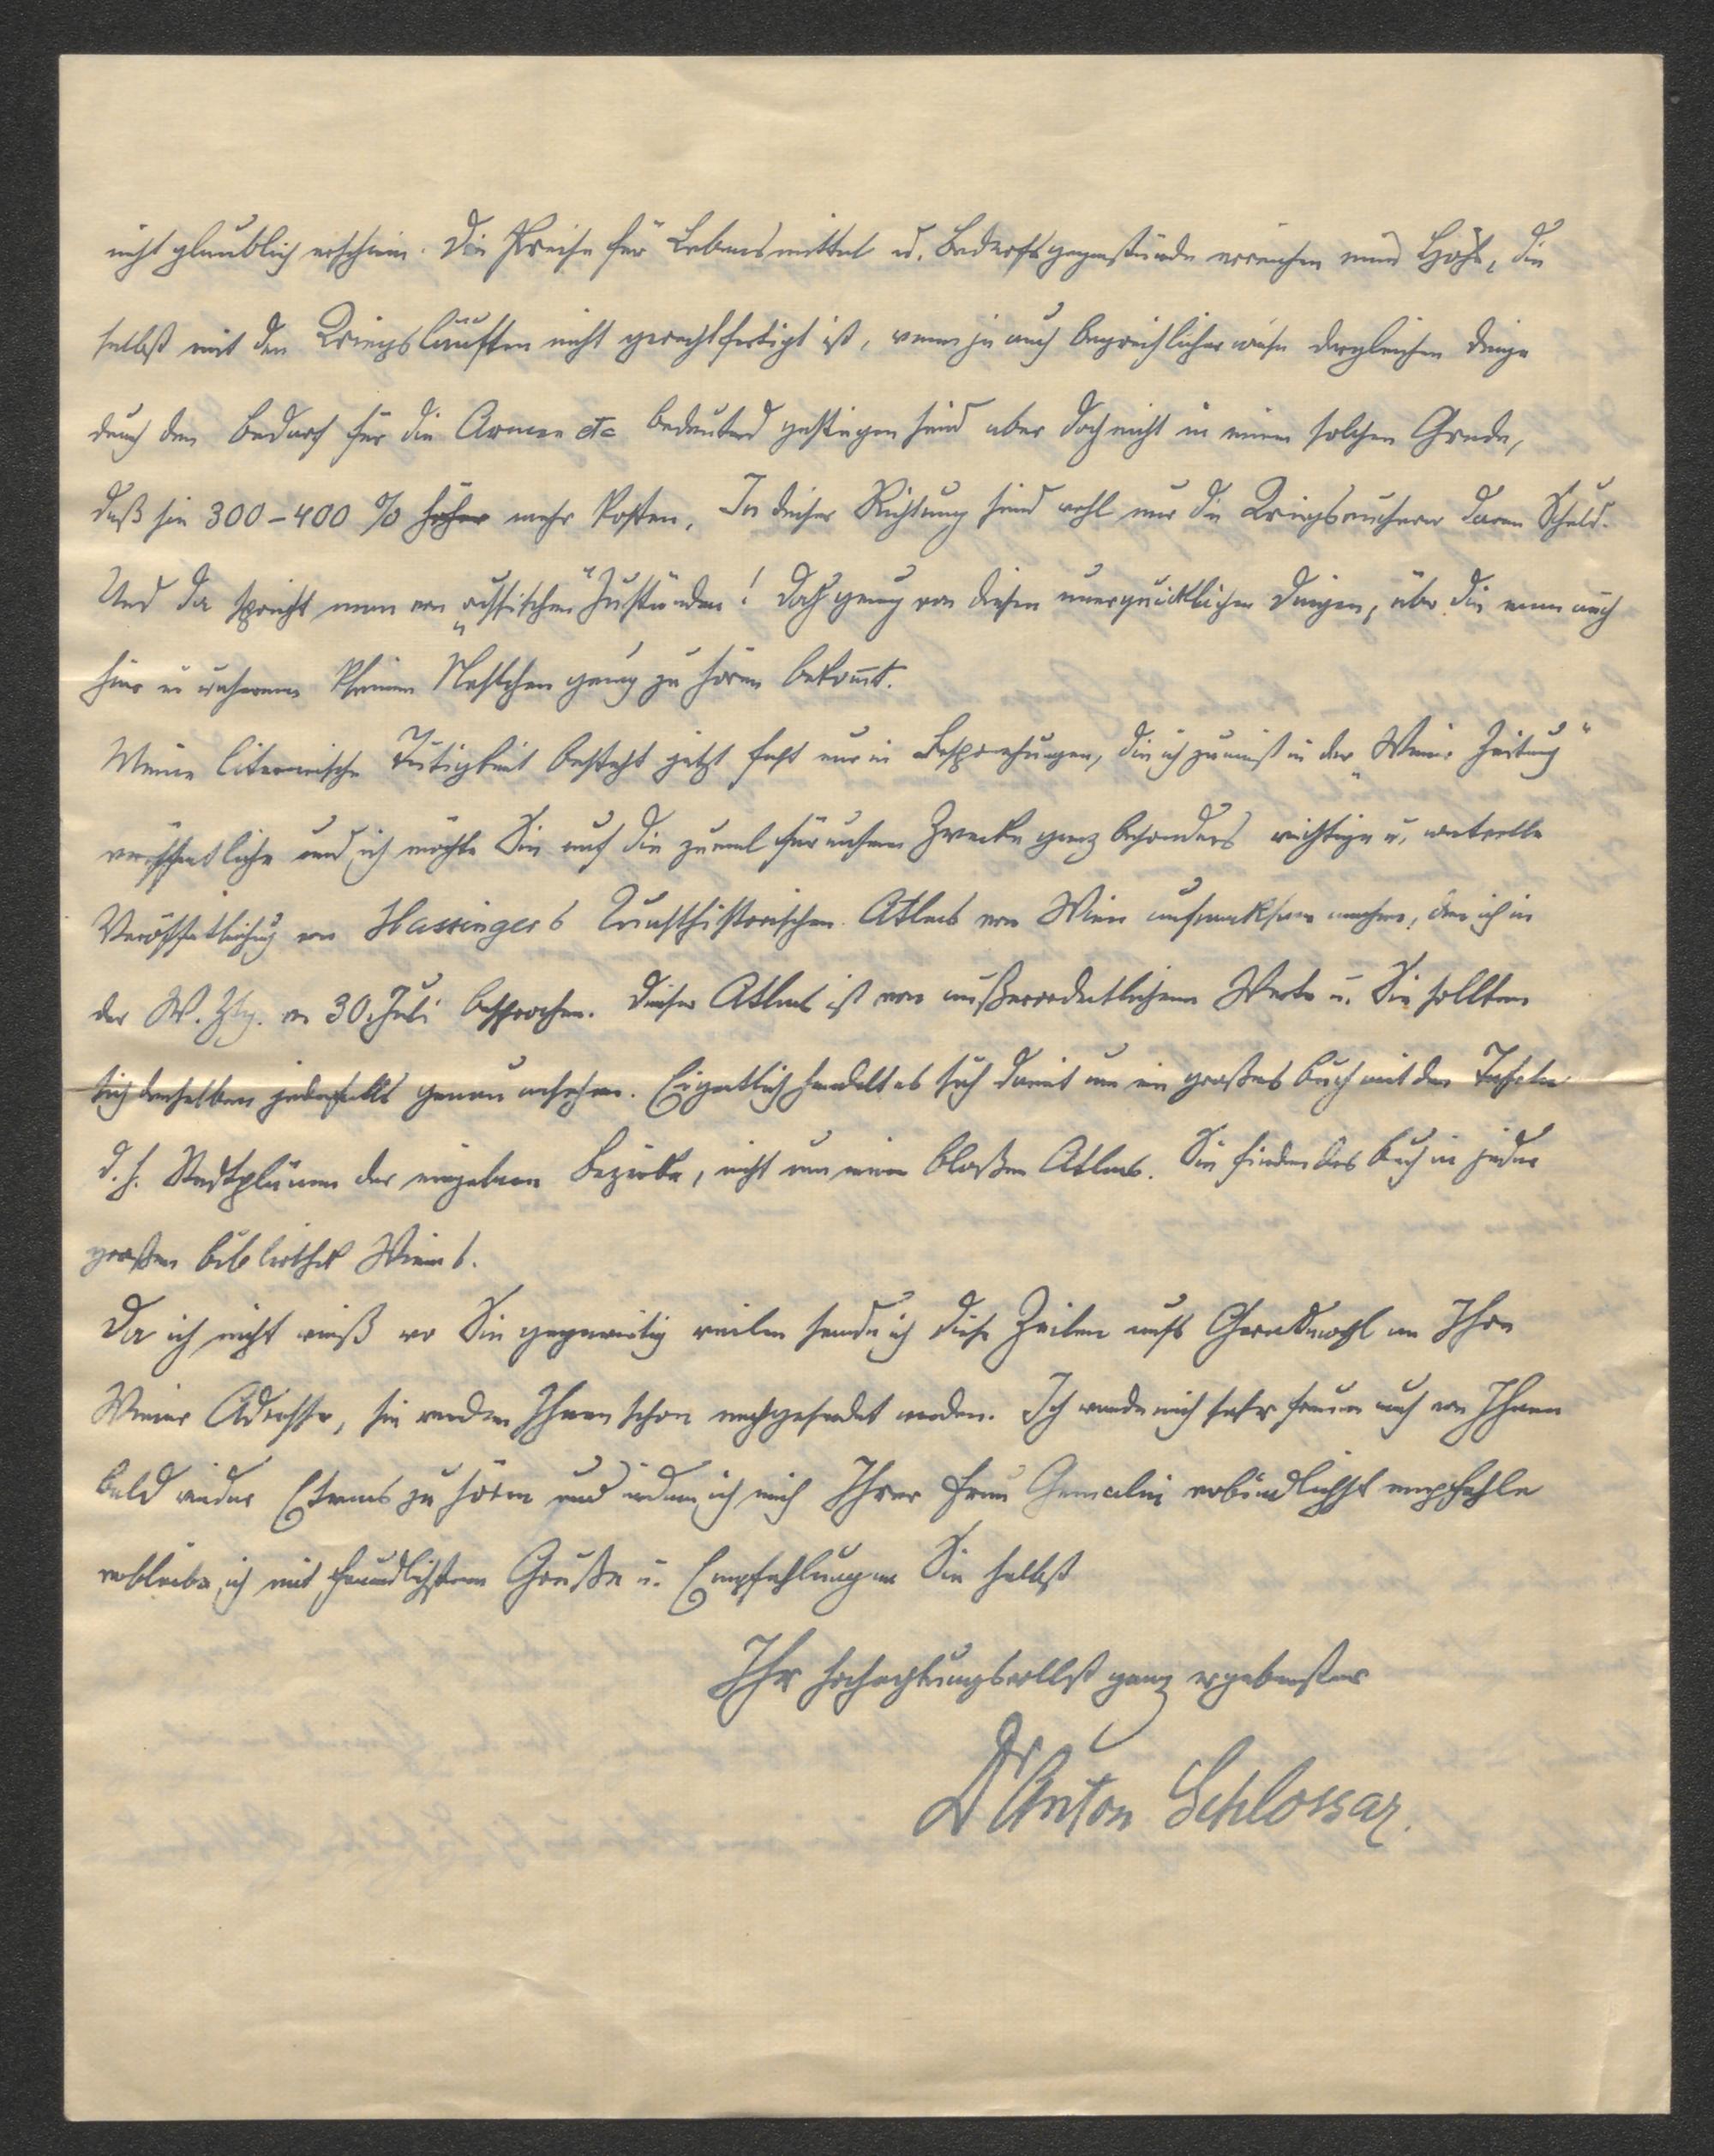 nicht glaublich erscheinen. Die Preise für Lebensmittel u. Bedarfsgegenstände erreichen eine Höhe, die
selbst mit den Kriegsläuften nicht gerechtfertigt ist, wenn ja auch begreiflicher weise dergleichen Dinge
durch den Bedarf für die Armee etc bedeutend gestiegen sind aber doch nicht in einem solchen Grade,
daß sie 300–400 % höher mehr kosten. In dieser Richtung sind wohl nur die Kriegswucherer daran Schuld.
Und da spricht man von „russischen“ Zuständen! Doch genug von diesen unerquicklichen Dingen, über die man auch
hier in unserem kleinen Nestchen genug zu hören bekom̅t.
Meine literarische Tätigkeit besteht jetzt fast nur in Besprechungen, die ich zumeist in der „Wiener Zeitung“
veröffentliche und ich möchte Sie auf die zumal für unsere Zwecke ganz besonders wichtige u. wertvolle
Veröffentlichung von Hassingers Kunsthistorischen Atlas von Wien aufmerksam machen, den ich in
der W. Ztg. v. 30. Juli besprochen. Dieser Atlas ist von außerordentlichem Werte u. Sie sollten
sich denselben jedenfalls genau ansehen. Eigentlich handelt es sich damit um ein großes Buch mit den Tafeln
d. h. Stadtplänen der einzelnen Bezirke, nicht um einen bloßen Atlas. Sie finden das Buch in jeder
großen Bibliothek Wiens.
Da ich nicht weiß wo Sie gegenwärtig weilen sende ich diese Zeilen aufs Geradewohl an Ihre
Wiener Adresse, sie werden Ihnen schon nachgesendet werden. Ich werde mich sehr freuen auch von Ihnen
bald wieder Etwas zu hören und indem ich mich Ihrer Frau Gemalin verbindlichst empfehle
verbleibe ich mit freundlichstem Gruße u. Empfehlung an Sie selbst
Ihr hochachtungsvollst ganz ergebenster
Dr Anton Schlossar.